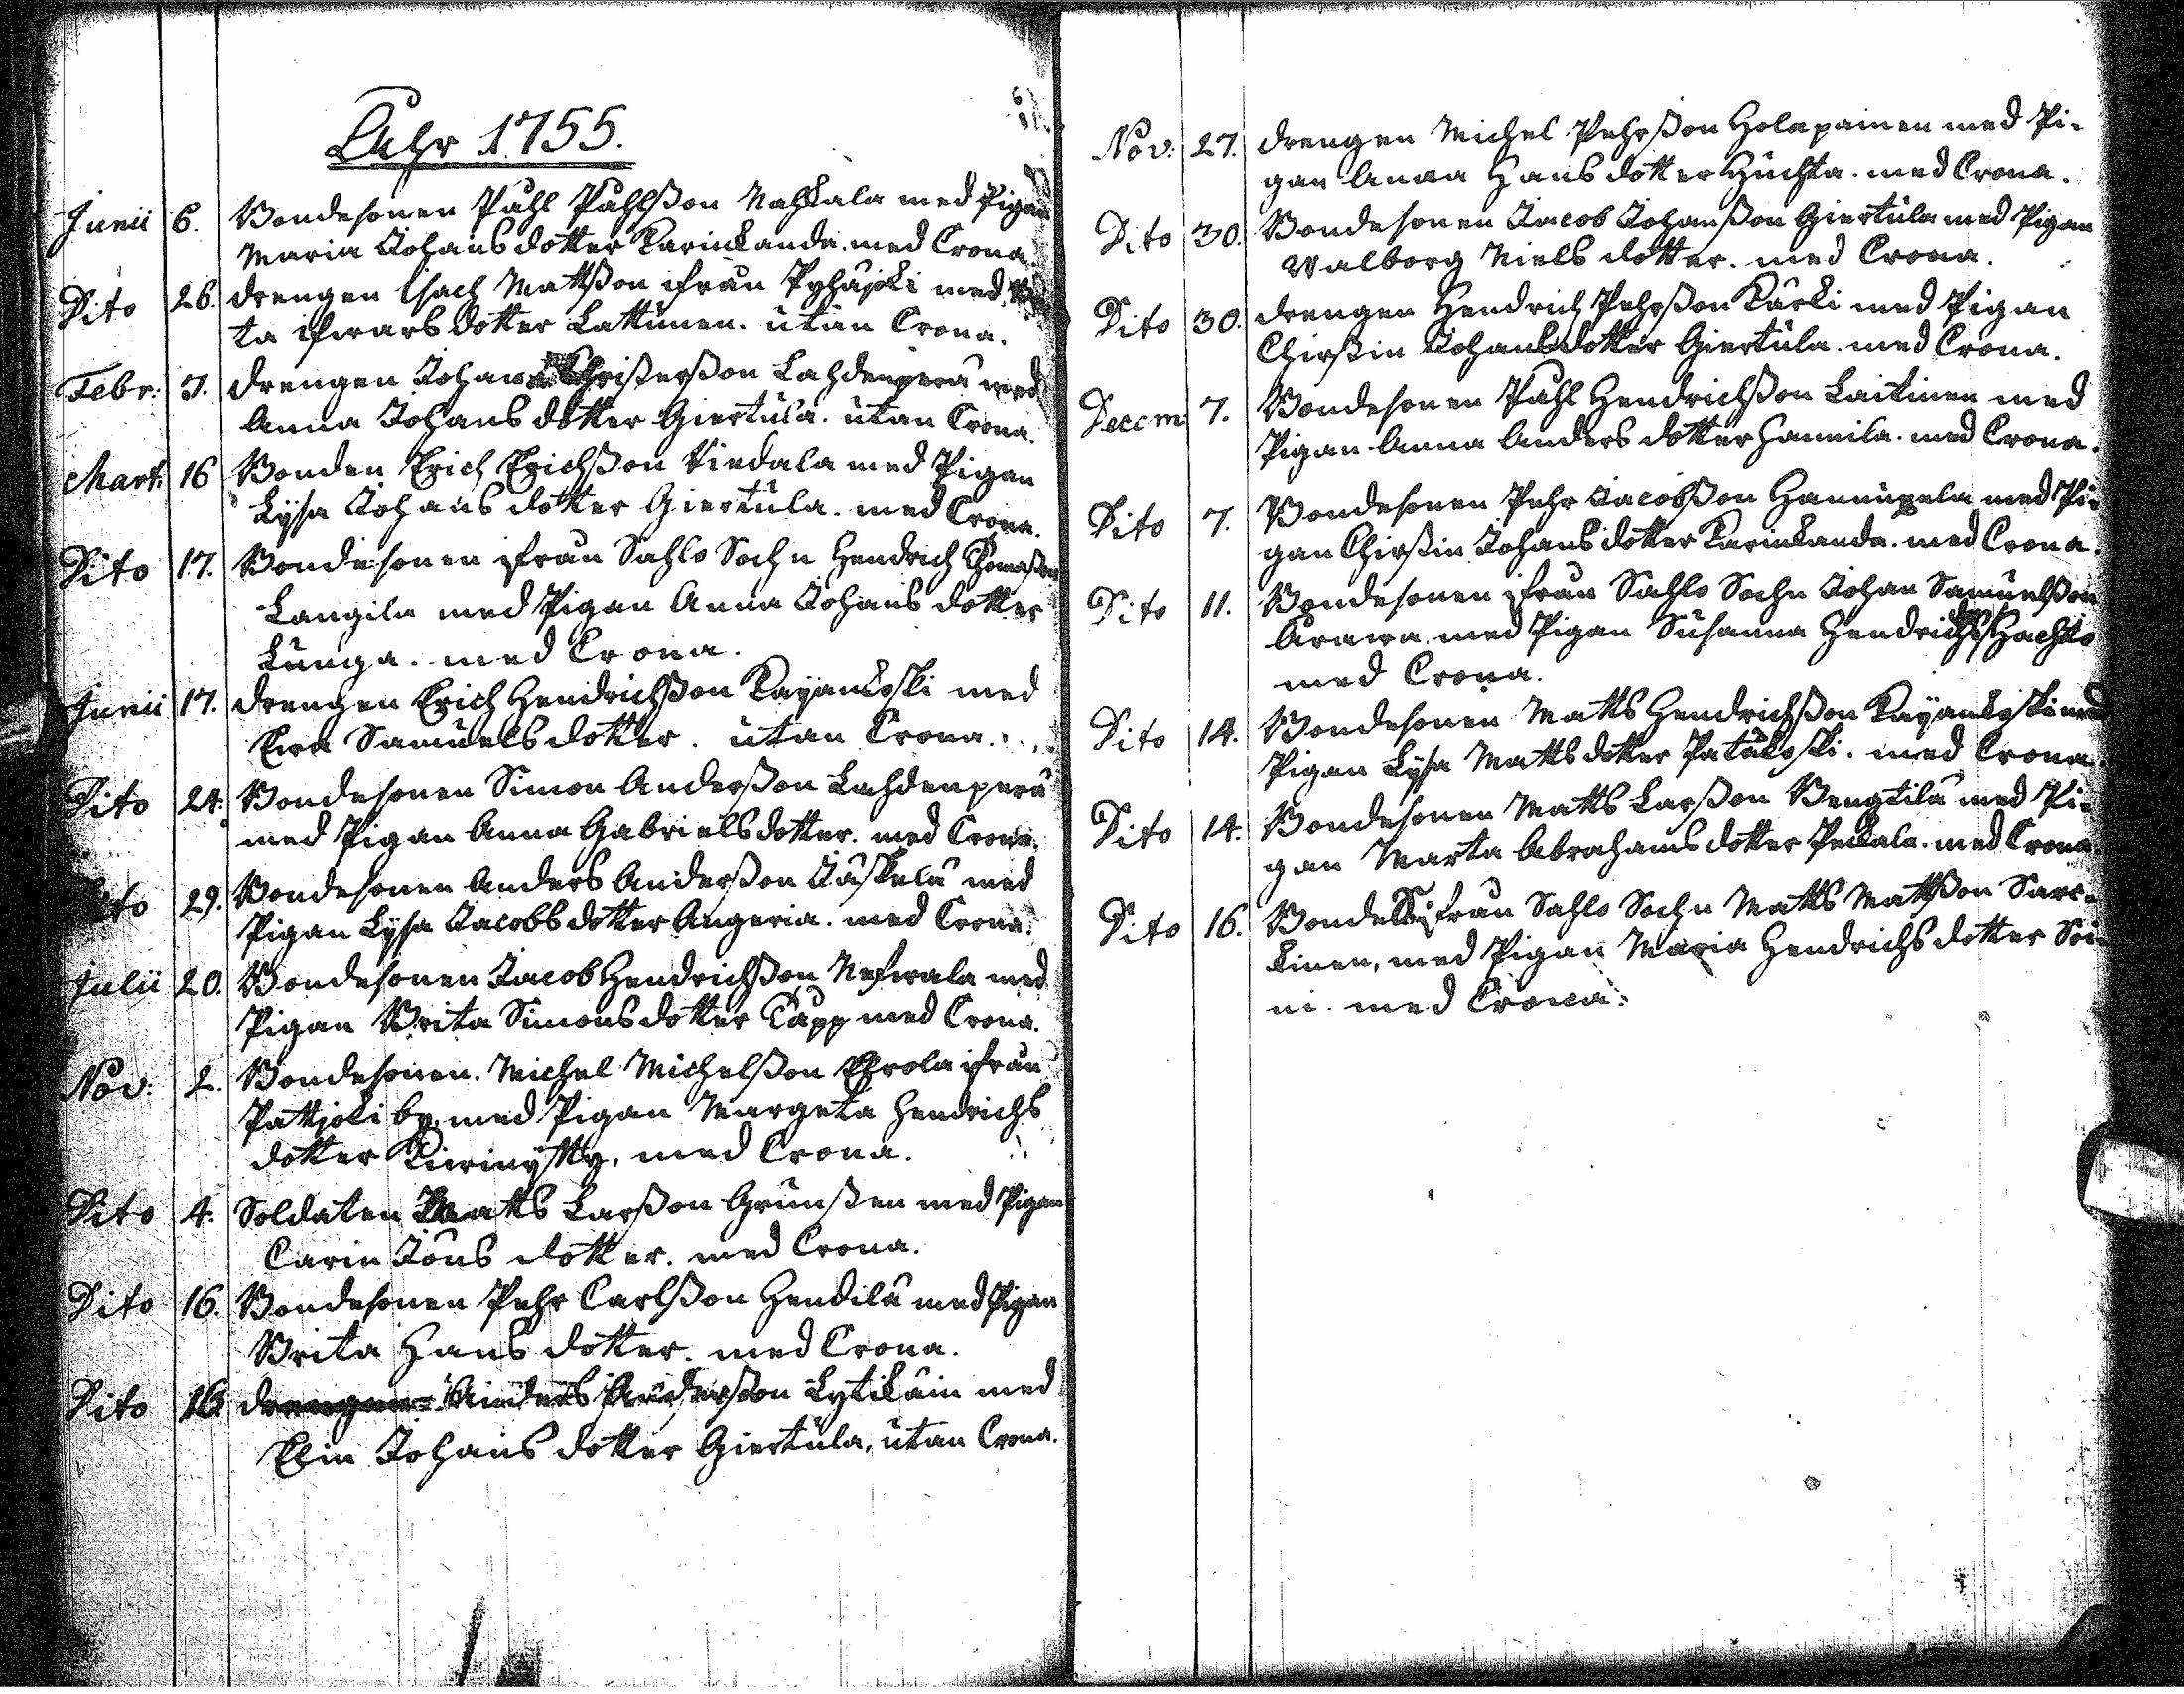 Åhr 1755.
Junii 6. Bondesonen Påhl Påhlsson Nahkala med Pigan
Maria Johans dotter Karinkanda. med Crona.
Dito 26. drengen Isach Mattsson ifrån Pyhäjoki med
ta Ifvars dotter Lattunen. utan Crona.
Febr: 3. drengen Johan Christersson Lahdenperä med
Anna Johans dotter Giertula. utan Crona.
Mart: 16 Bonden Erich Erichsson Viedala med Pigan
Lysa Johans dotter Giertula. med Crona.
Dito 17. Bondesonen ifrån Sahlo Sochn Hendrich Thomasson
Kangila med Pigan Anna Johans dotter
Lunga. med Crona.
Junii 17. drengen Erich Hendrichsson Kayankoski med
Ewa Samuels dotter. utan Crona.
Dito 24. Bondesonen Simon Andersson Lahdenperä
med Pigan Anna Gabriels dotter. med Crona.
Dito 29. Bondesonen Anders Andersson Jäskelä med
Pigan Lysa Jacobs dotter Angeria. med Crona.
Julii 20. Bondesonen Jacob Hendrichsson Nefwala med
Pigan Brita Simons dotter Kapp med Crona.
Nov: 2. Bondesonen. Michel Michelsson Eerola ifrån
Pattjoki by, med Pigan Margeta Hendrichs
dotter Kiwinystky, med Crona.
Dito 4. Soldaten Matts Larsson Grunsten med Pigan
Carin Jöns dotter. med Crona.
Dito 16. Bondesonen Pehr Carlsson Hendilä med Pigan
Brita Hans dotter. med Crona.
Dito 16 drengen Anders Andersson Lytikäin med
Elin Johans dotter Giertula, utan Crona.
Nov: 27. drengen Michel Pehrsson Holapainen med Pi-
gan Anna Hans dotter Huchta. med Crona.
Dito 30. Bondesonen Jacob Johansson Giertula med Pigan
Walborg Niels dotter. med Crona.
Dito 30. drengen Hendrich Pehrsson Kärki med Pigan
Chirstin Johans dotter Giertula. med Crona.
Decem 7. Bondesonen Påhl Hendrichsson Laitinen med
Pigan Anna Anders dotter Hannila. med Crona.
Dito 7. Bondesonen Pehr Jacobsson Hannuxela med Pi-
gan Chirstin Johans dotter Karinkanda. med Crona.
Dito 11. Bondesonen ifrån Sahlo Sochn Johan Samuelsson
Arawa med Pigan Susanna Hendrichs dotter Hachto
med Crona.
Dito 14. Bondesonen Matts Hendrichsson Kayankoski med
Pigan Lysa Matts dotter Patakoski. med Crona.
Dito 14. Bondesonen Matts Larsson Bengtilä med Pi-
gan Marta Abrahams dotter Pekkala. med Crona.
Dito 16. Bonde ifrån Sahlo Sochn Matts Mattsson Sare-
kinen, med Pigan Maria Hendrichs dotter Soi-
ni. med Crona.